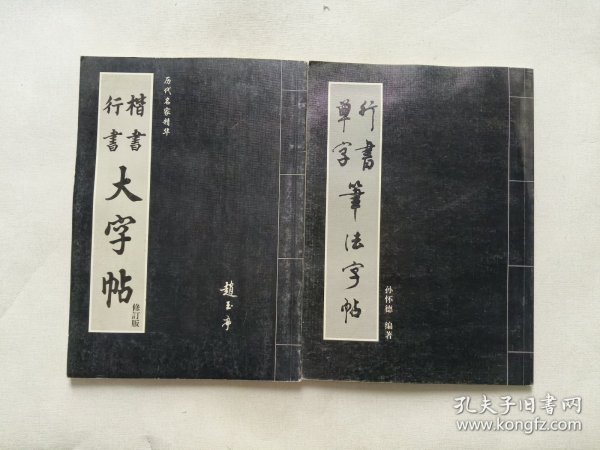 历代名家精华
楷書
行書
大字帖
修訂版
趙玉亭
行書
單字
筆法字帖
孙怀德 编著
孔夫子旧书网
www.kongfz.com